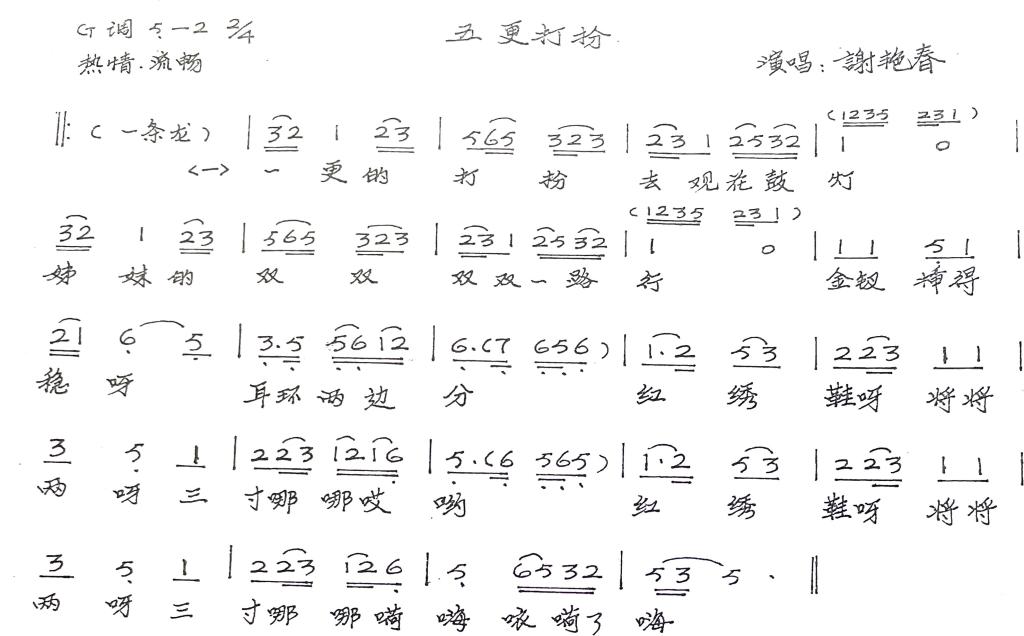 G调 5—2 2/4 五更打扮
热情.流畅 演唱：謝艳春
‖: ( 一条龙 ) | 32 1 23 | 565 323 | 231 2532 | (1235 231) 1 0 |
<一> 一 更 的 打 扮 去 观 花 鼓 灯
32 1 23 | 565 323 | 231 2532 | (1235 231) 1 0 | 11 51 |
姊 妹 的 双 双 双 双 一 路 行 金钗 樟得
21 6 5 | 3.5 5612 | 6.(7 656) | 1.2 53 | 223 11 |
稳 呀 耳环 两 边 分 红 绣 鞋呀 将将
3 5 1 | 223 1216 | 5.(6 565) | 1.2 53 | 223 11 |
两 呀 三 寸哪 哪哎 哟 红 绣 鞋呀 将将
3 5 1 | 223 126 | 5 6532 | 53 5 . ‖
两 呀 三 寸哪 哪嗬 嗨 咳 嗬了 嗨